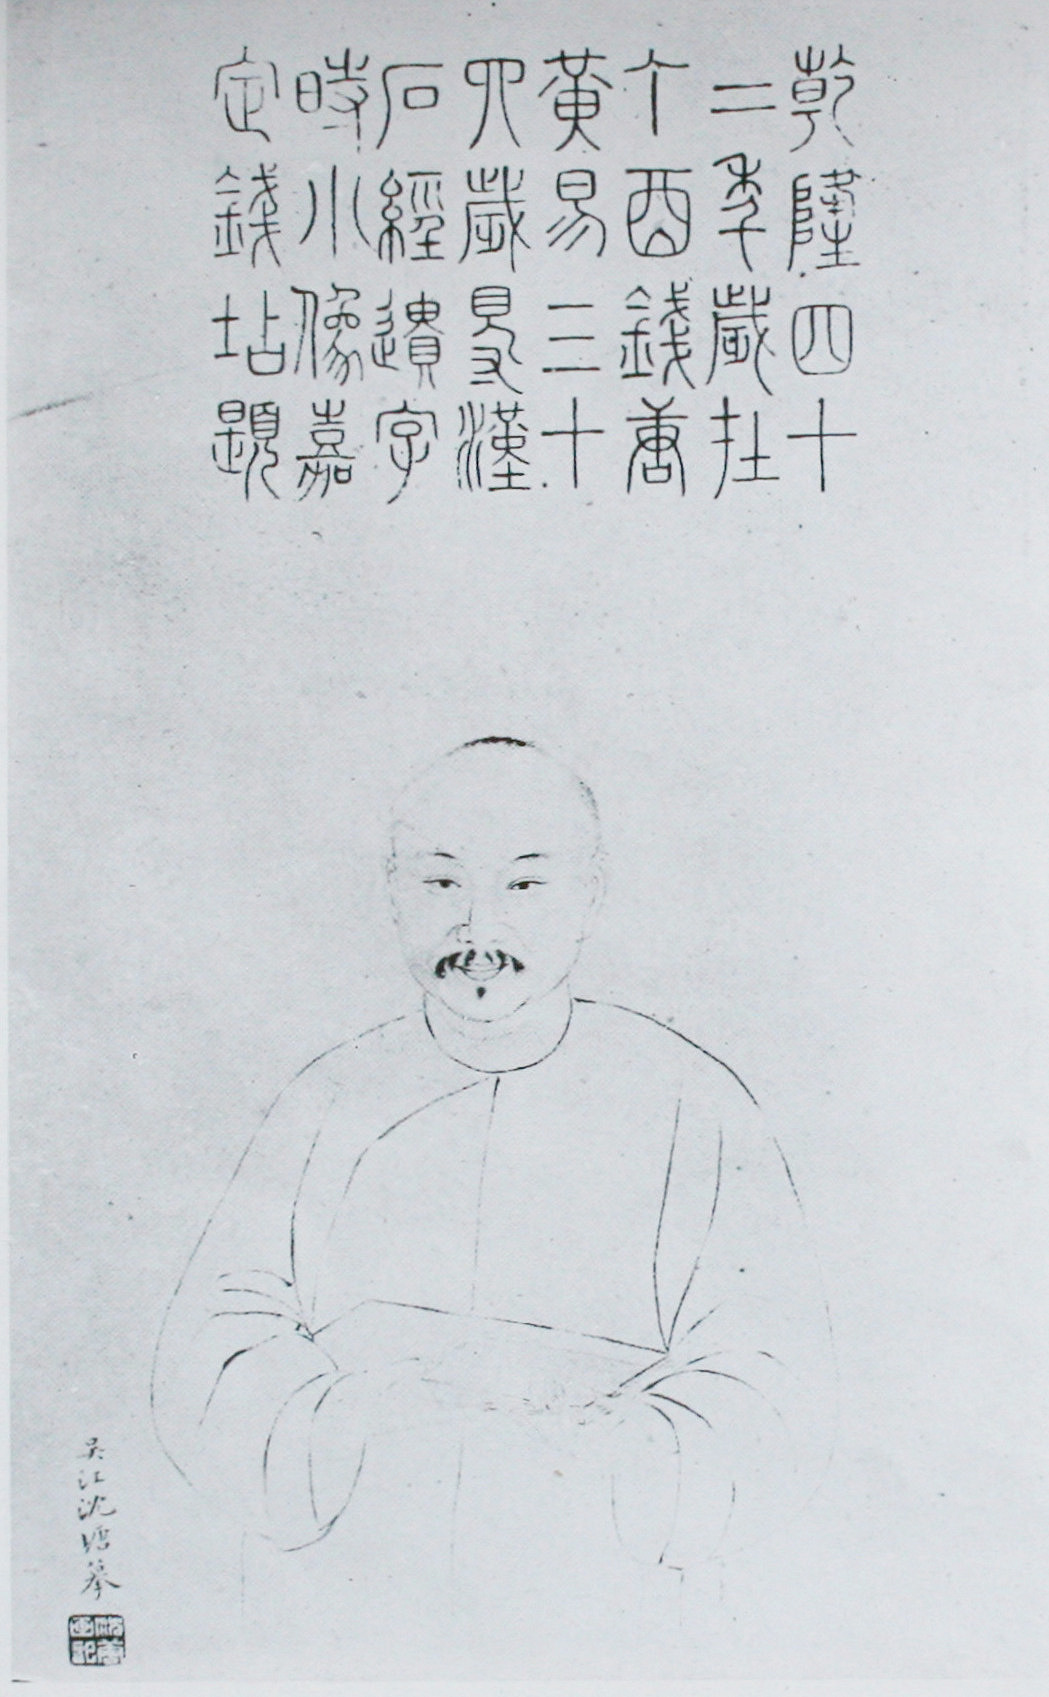 乾隆四十
二秊歲在
丁酉錢唐
黃易三十
四歲㝵漢
石經遺字
時小像嘉
定錢坫題
吳江沈塘摹